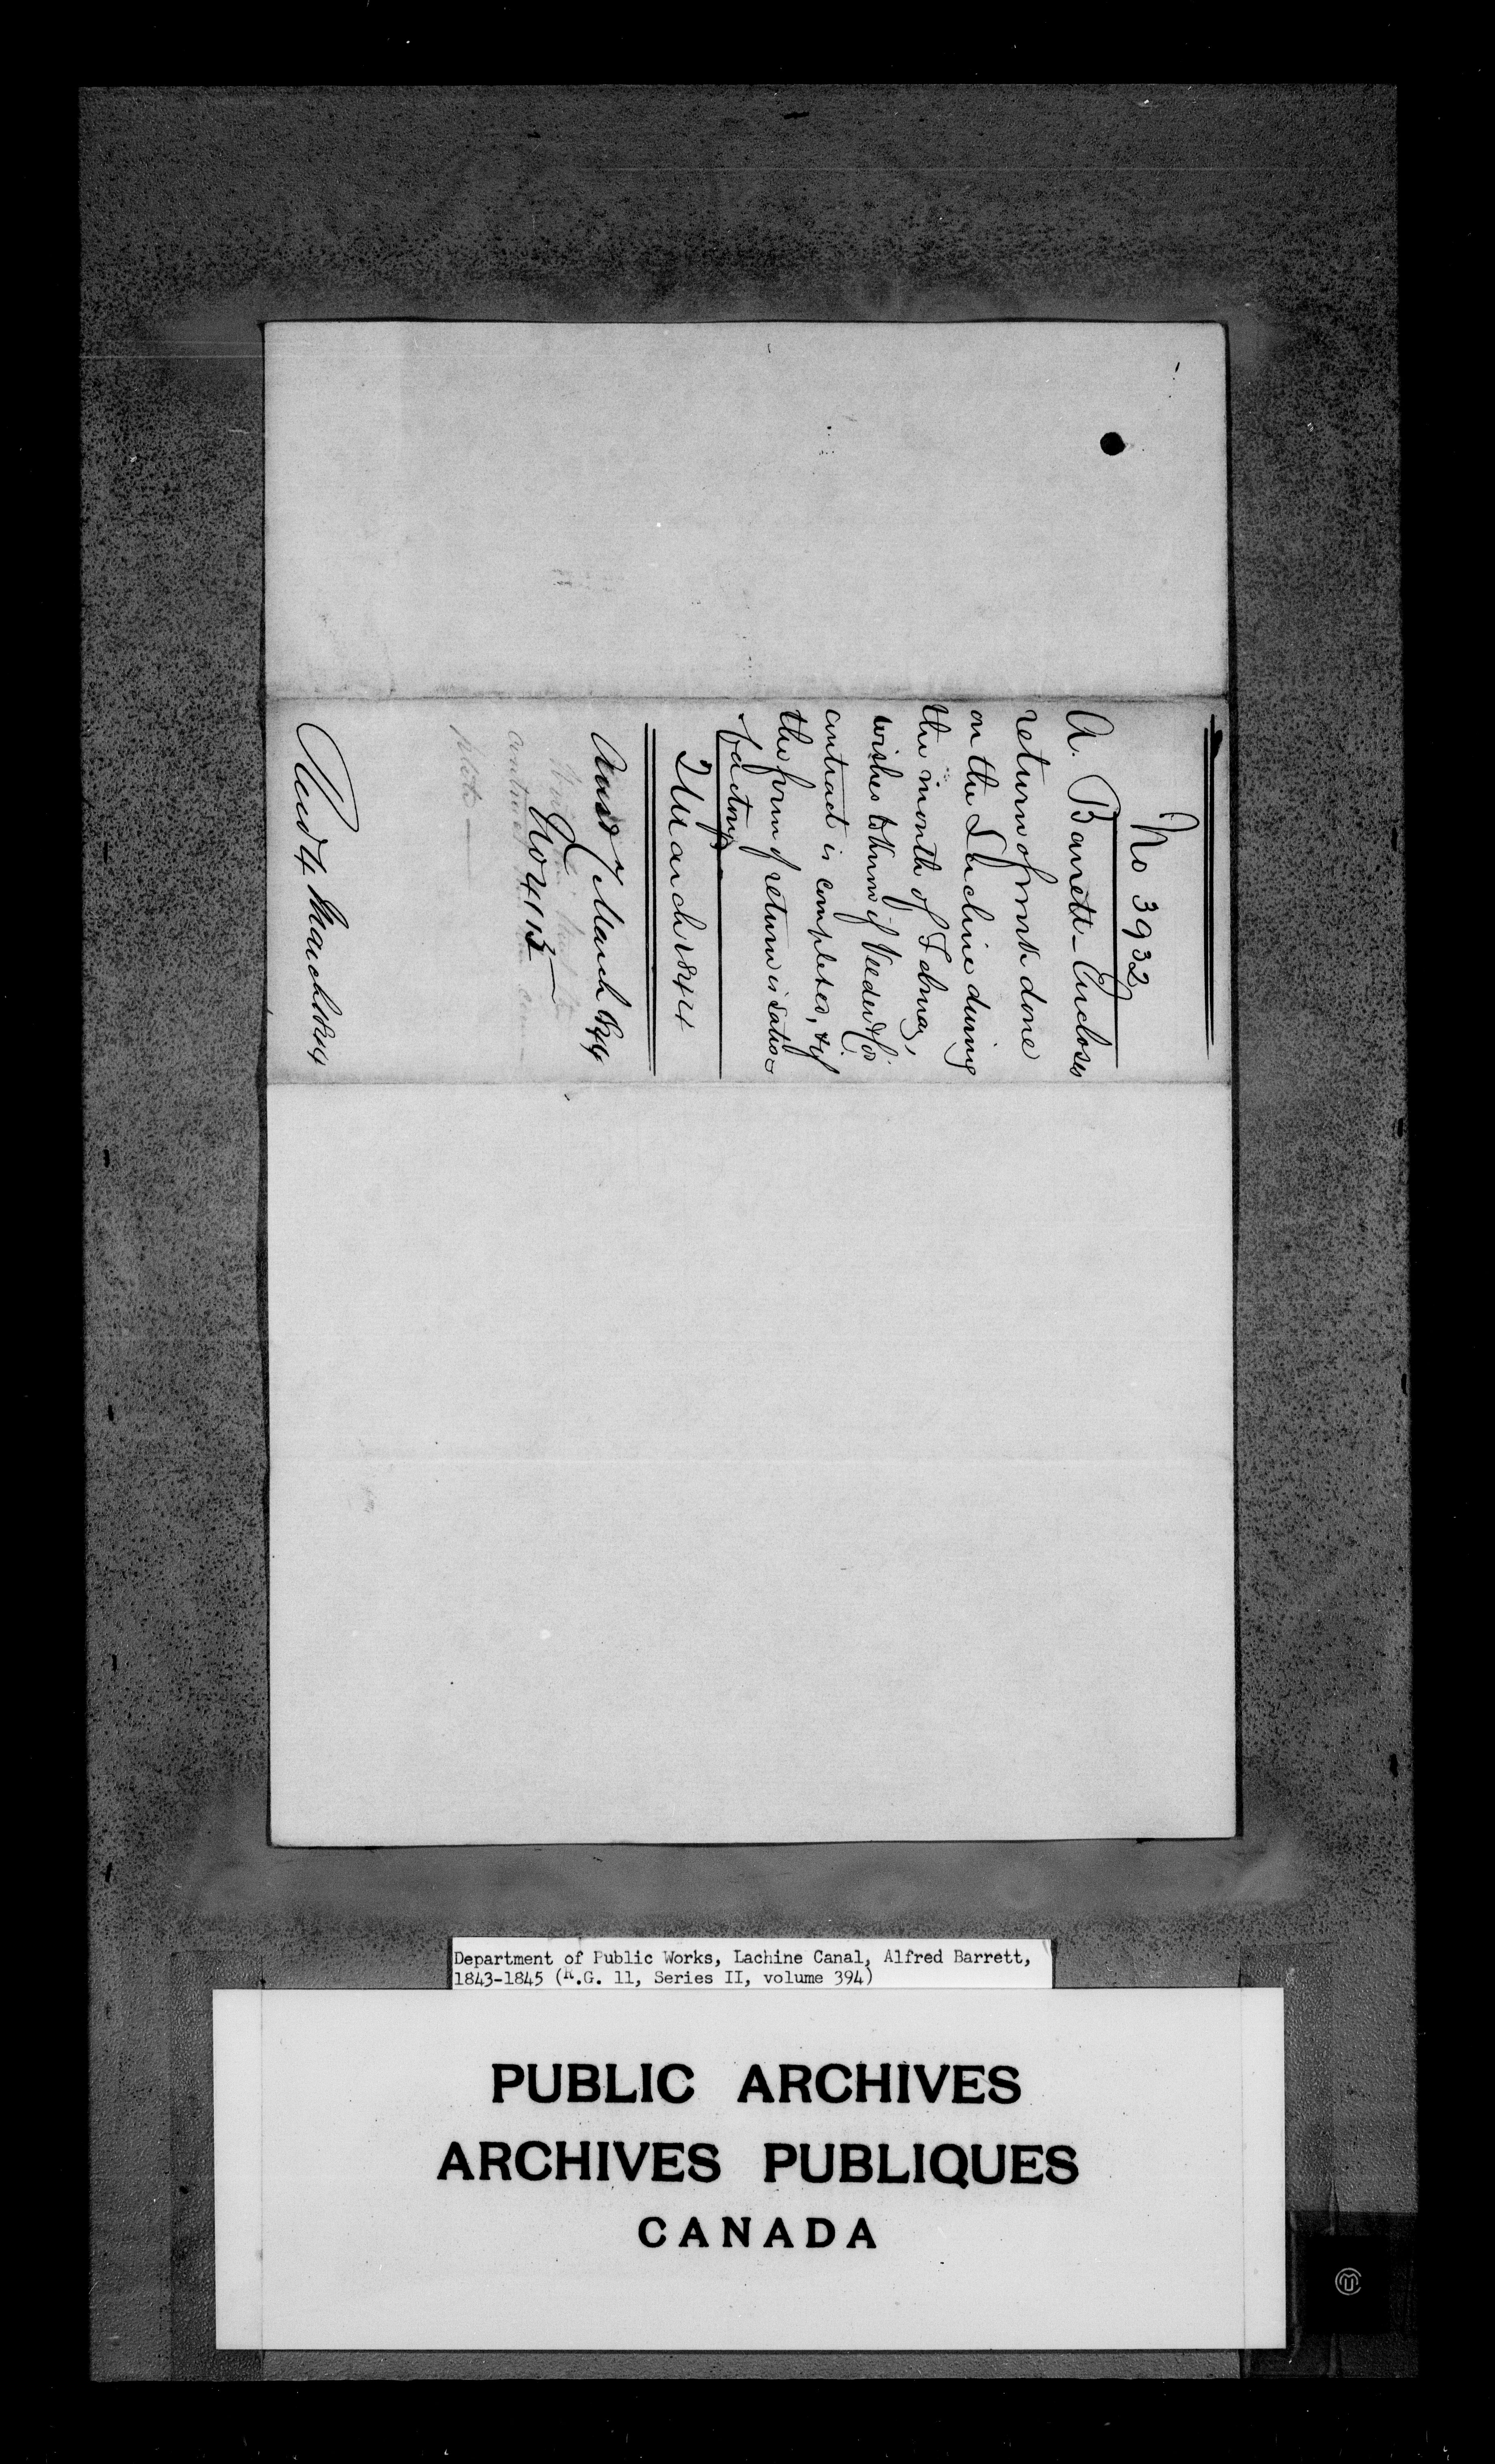 No 3932
A. Barrett_ Encloses
return of work done
on the Lachine during
the month of Februay,
wishes to know if Veeder & Co's
contract is completed, & if
the form of return is satis=
factory.
2 March 1844
Ansd 7 March 1844
No 4113
contract
plete
Recd 4 March 1844
Department of Public Works, Lachine Canal, Alfred Barrett,
1843-1845 (R.G. 11, Series II, volume 394)
PUBLIC ARCHIVES
ARCHIVES PUBLIQUES
CANADA